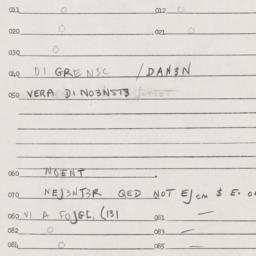 011 0 012 0
020 0 021 0
030 0
040 DI GRENSC / DAN3N
050 VERA DI NO3NST3
060 NOENT
070 NEJ3NT3R QED NOT EJ cm $ E.
080 VI A FOJGL, (131 081 —
082 0 083 —
084 0 085 —